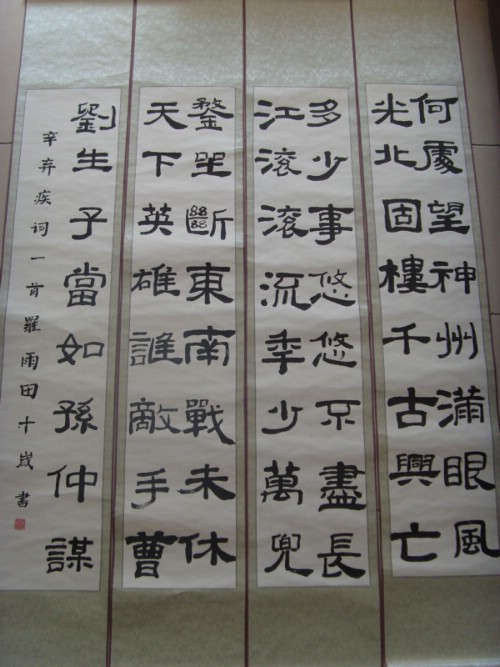 何處望神州滿眼風
光北固樓千古興亡
多少事悠悠不盡長
江滾滾流年少萬兜
鍪坐斷東南戰未休
天下英雄誰敵手曹
劉生子當如孫仲謀
辛弃疾詞一首羅雨田十歲書